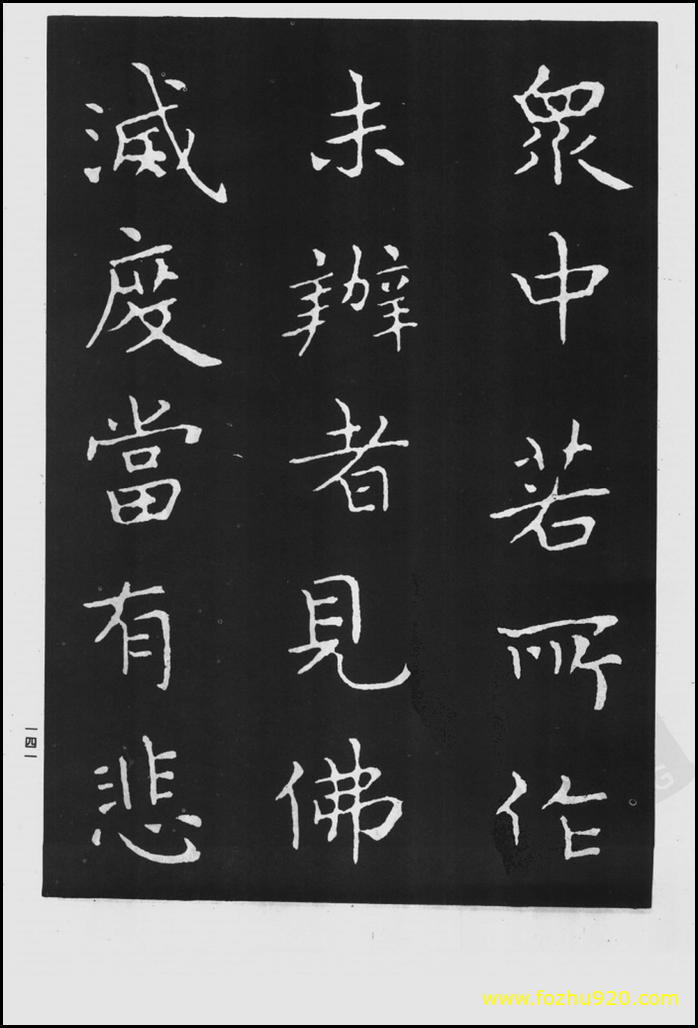 眾中若所作
未辦者見佛
滅度當有悲
一四一
www.fozhu920.com